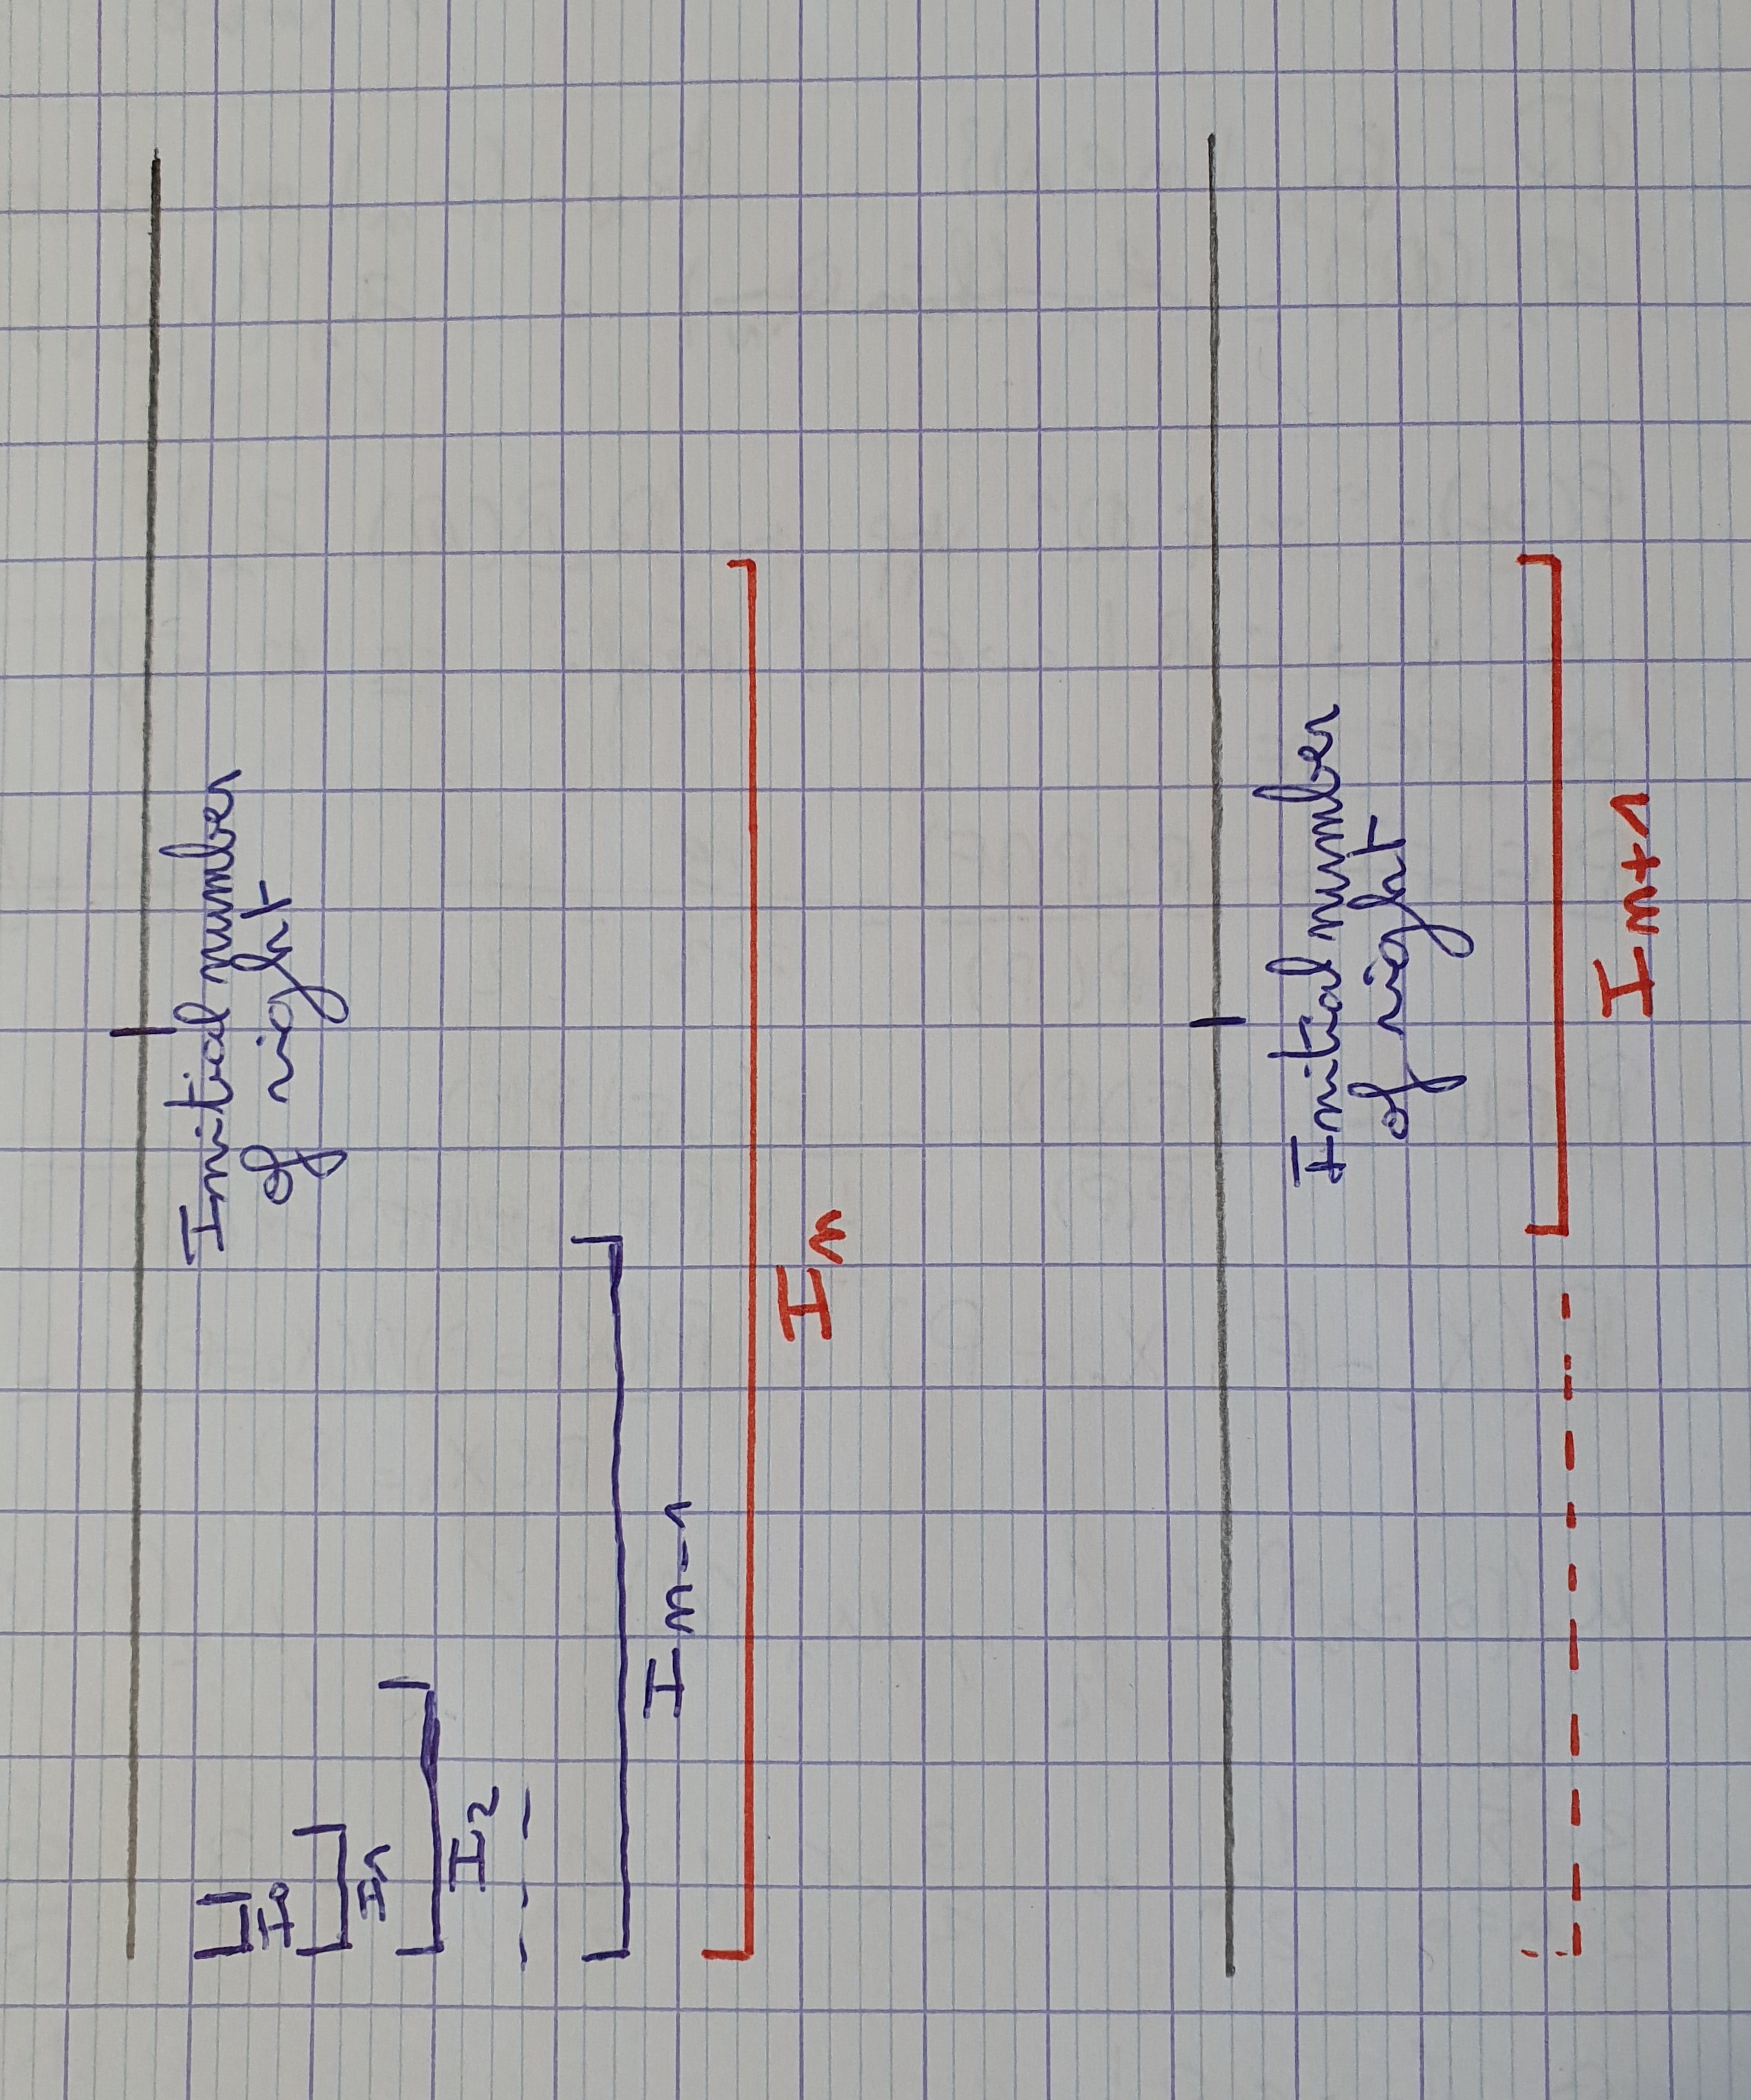 Initial number
of right
I0
I1
I2
In-1
In
Initial number
of right
In+1